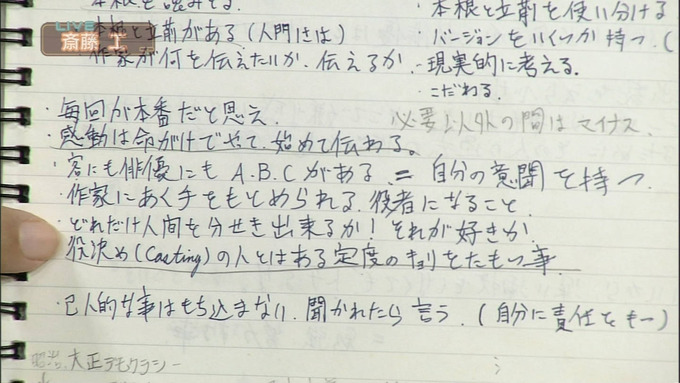 LIVE
斎藤 工
本根を読みとる.
・本根と立前を使い分ける
・本根と立前がある(人門はきは)
バージョンをいくつか持つ.(
作家が何を伝えたいか. 伝えるか.
-現実的に考える.
・こだわる.
・毎回が本番だと思え.
必要以外の間はマイナス.
・感動は命がけでやって、始めて伝わる。
・客にも俳優にも A.B.Cがある. = 自分の意聞を持つ.
・作家にあく手をもとめられる. 役者になること.
・どれだけ人間を分せき出来るか! それが好きか.
・役決め(Casting)の人とはある定度のキョリをたもつ事.
・己人的な事はもち込まない. 聞かれたら言う. (自分に責任をもー)
大正デモクラシー